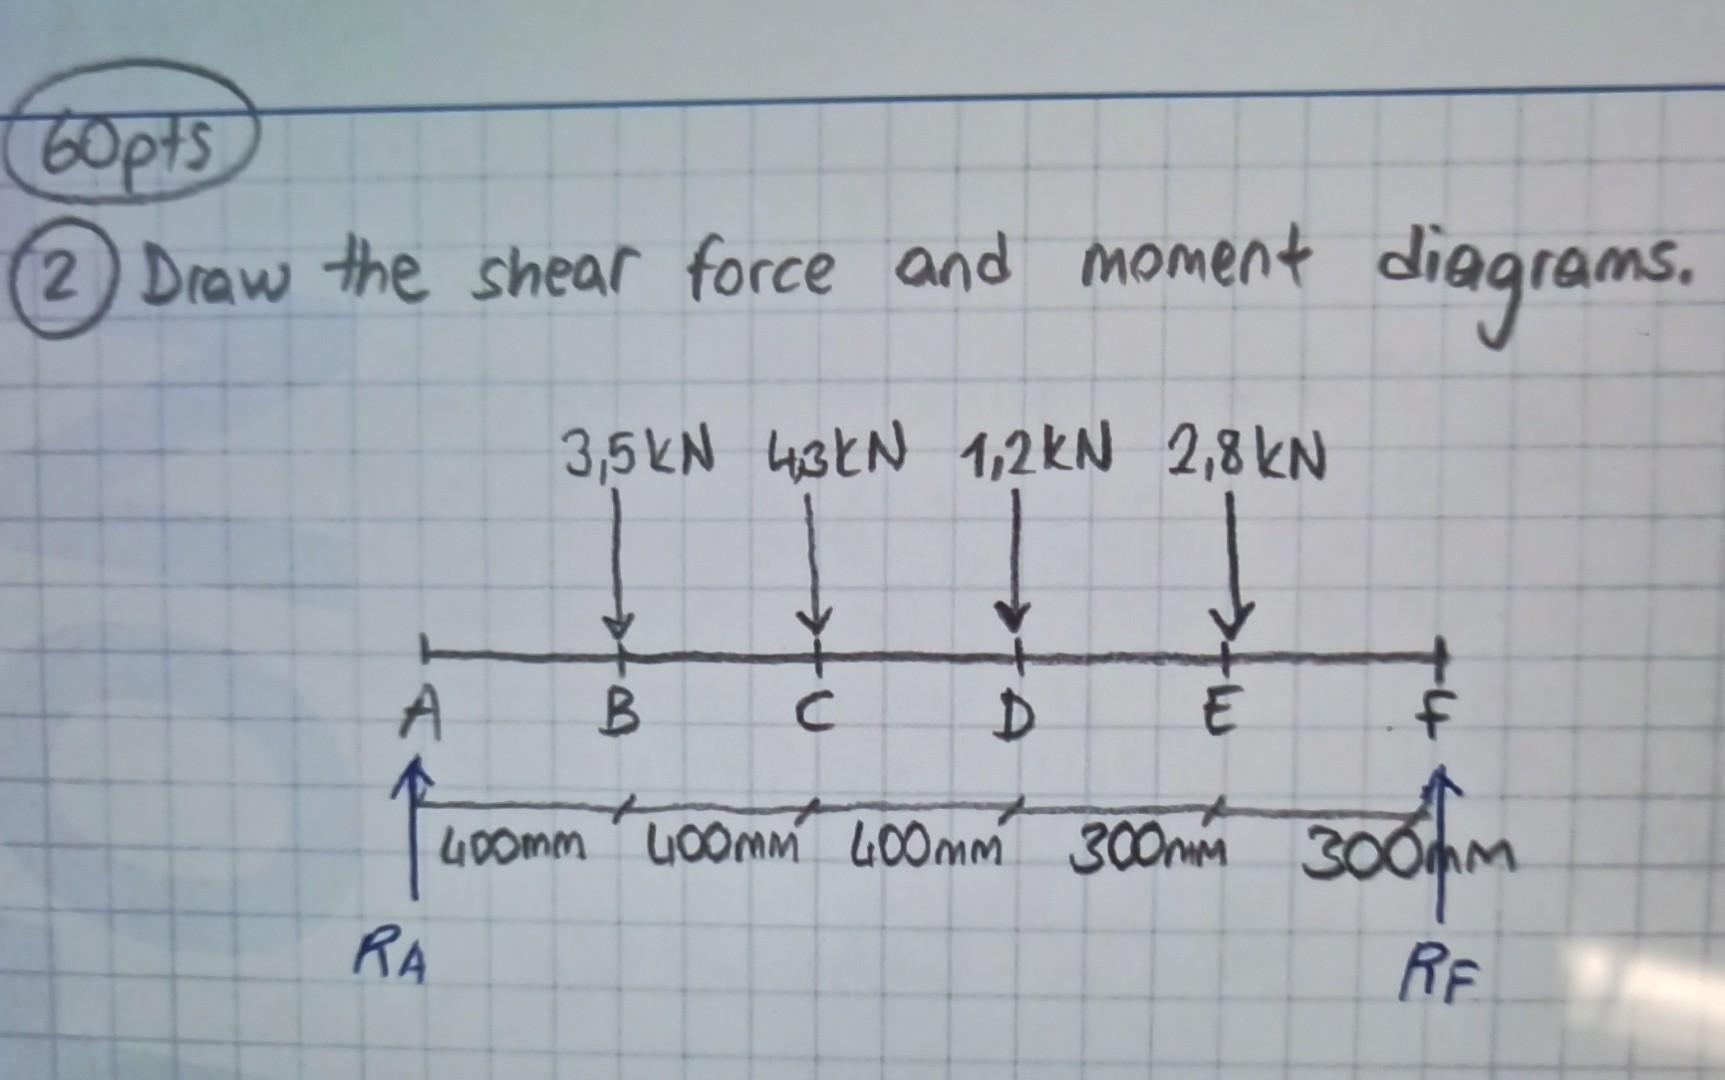 60pts
2 Draw the shear force and moment diagrams.
3,5kN 4,3kN 1,2kN 2,8kN
A B C D E F
400mm 400mm 400mm 300mm 300mm
RA RF